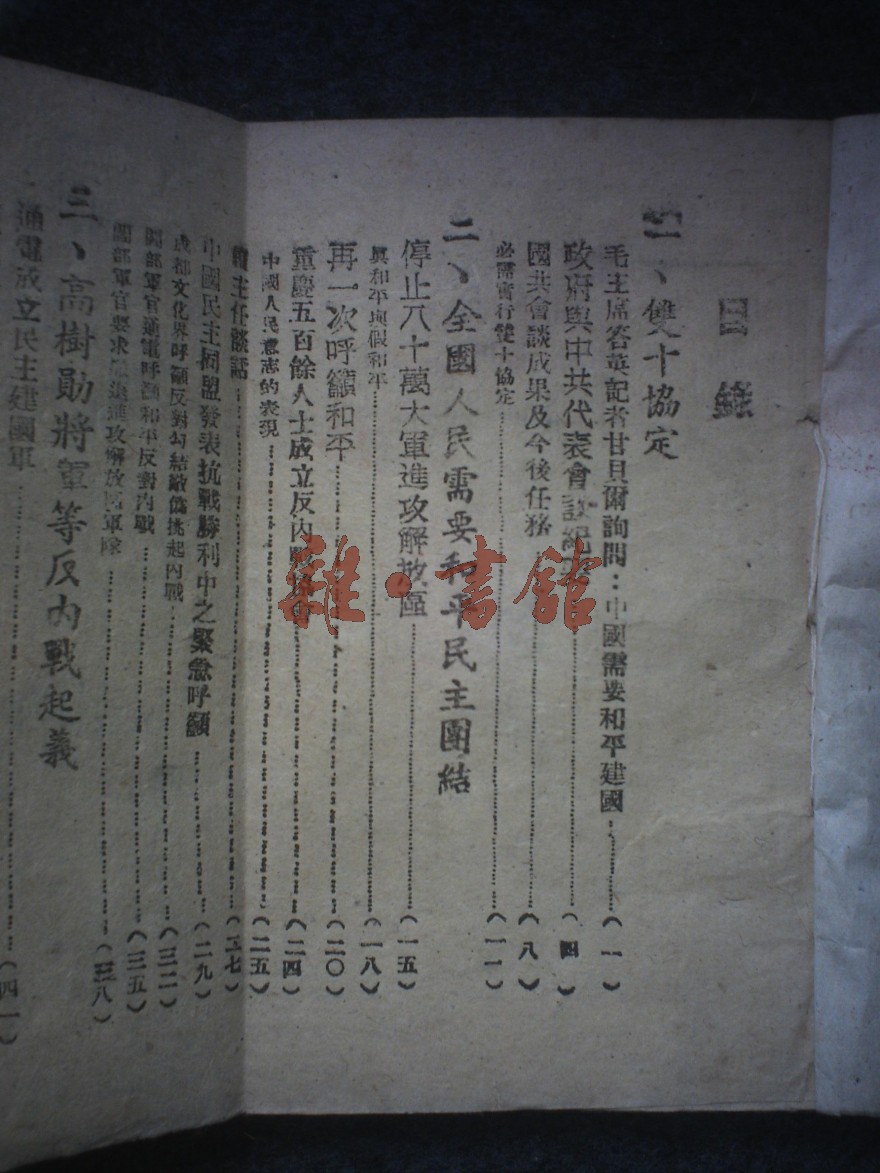 目錄
一、雙十協定
毛主席答英記者甘貝爾詢問：中國需要和平建國…………（一）
政府與中共代表會談紀…………（四）
國共會談成果及今後任務…………（八）
必需實行雙十協定…………（一一）
二、全國人民需要和平民主團結
停止八十萬大軍進攻解放區…………（一五）
真和平與假和平…………（一八）
再一次呼籲和平…………（二〇）
重慶五百餘人士成立反內戰…………（二四）
中國人民意志的表現…………（二五）
主任談話…………（二七）
中國民主同盟發表抗戰勝利中之緊急呼籲…………（二九）
成都文化界呼籲反對勾結敵偽挑起內戰…………（三二）
閻部軍官通電呼籲和平反對內戰…………（三五）
閻部軍官要求進攻解放區軍隊…………（三八）
三、高樹勛將軍等反內戰起義
通電成立民主建國軍…………（四一）
雜·書館